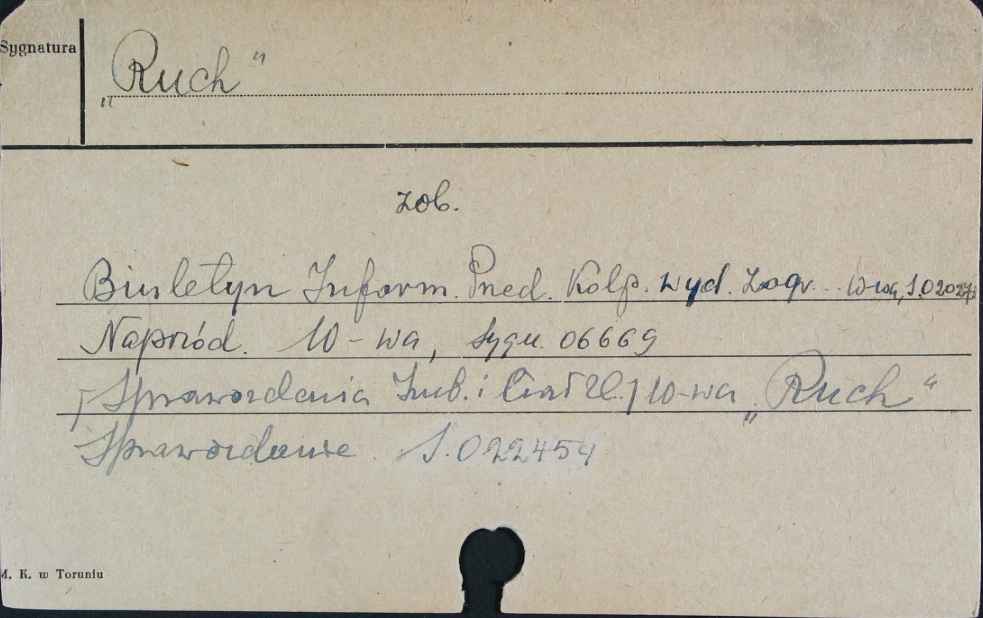 Sygnatura
„Ruch"
zob.
Biuletyn Inform. Przed. Kolp. wyd. Zagr. W-wa, S.02027
Naprzód. W-wa, sygn. 06669
[Sprawozdania Inst. i Ciał Zb.] W-wa „Ruch"
Sprawozdanie. S.022454
M. K. w Toruniu